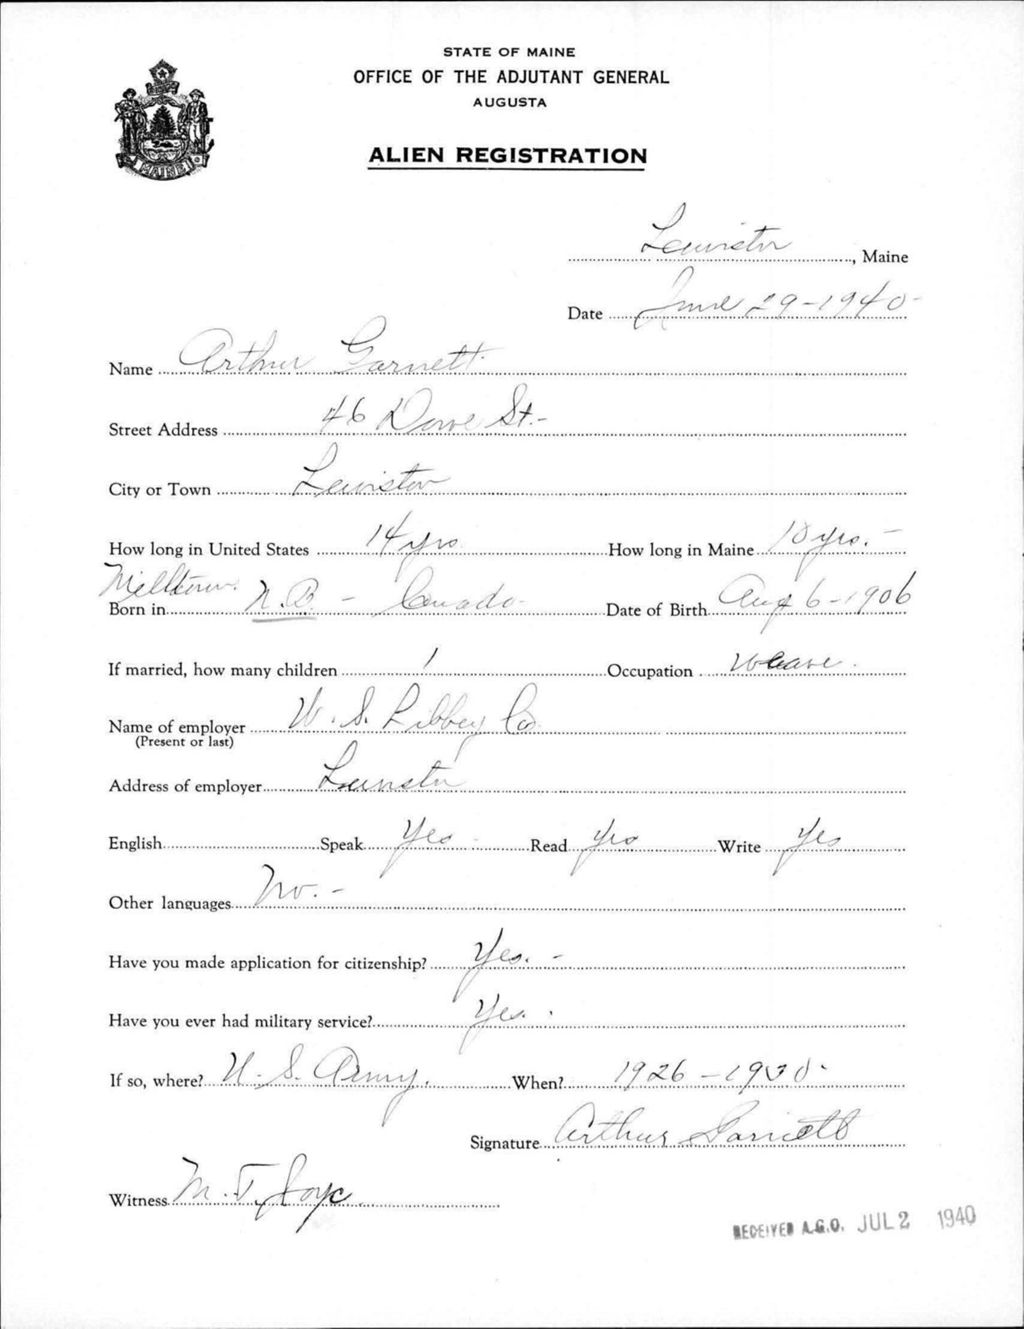 STATE OF MAINE
OFFICE OF THE ADJUTANT GENERAL
AUGUSTA
ALIEN REGISTRATION
MAINE
Lewiston, Maine
Date June 29-1940-
Name Arthur Garnett.
Street Address 46 Howe St.-
City or Town Lewiston
How long in United States 14 yrs How long in Maine 10 yrs. -
Milltown.
Born in N.B. - Canada- Date of Birth Aug 6-1906
If married, how many children 1 Occupation Weave.
Name of employer W. S. Libbey Co.
(Present or last)
Address of employer Lewiston
English Speak Yes - Read Yes Write Yes
Other languages No. -
Have you made application for citizenship? Yes. -
Have you ever had military service? Yes.
If so, where? U. S. Army. When? 1926-1930-
Signature Arthur Garnett
Witness M. T. Joyc
RECEIVED A.G.O. JUL 2 1940